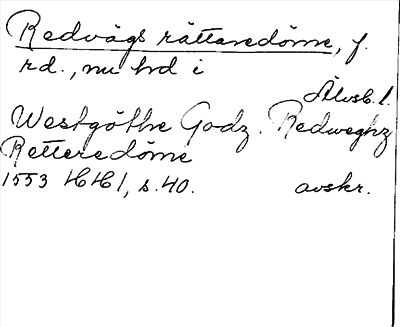 Redvägs rättaredöme, f.
rd., nu hd i
Älvsb. l.
Westgöthe Godz. Redweghz
Retteredöme
1553 HH 1, s. 40. avskr.